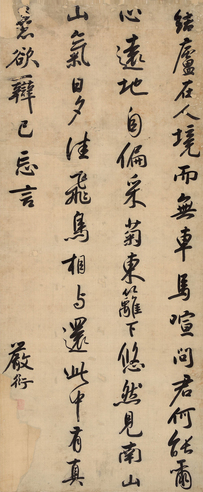 結廬在人境而無車馬喧問君何能爾
心遠地自偏采菊東籬下悠然見南山
山氣日夕佳飛鳥相与還此中有真
意欲辯已忘言
嚴衍